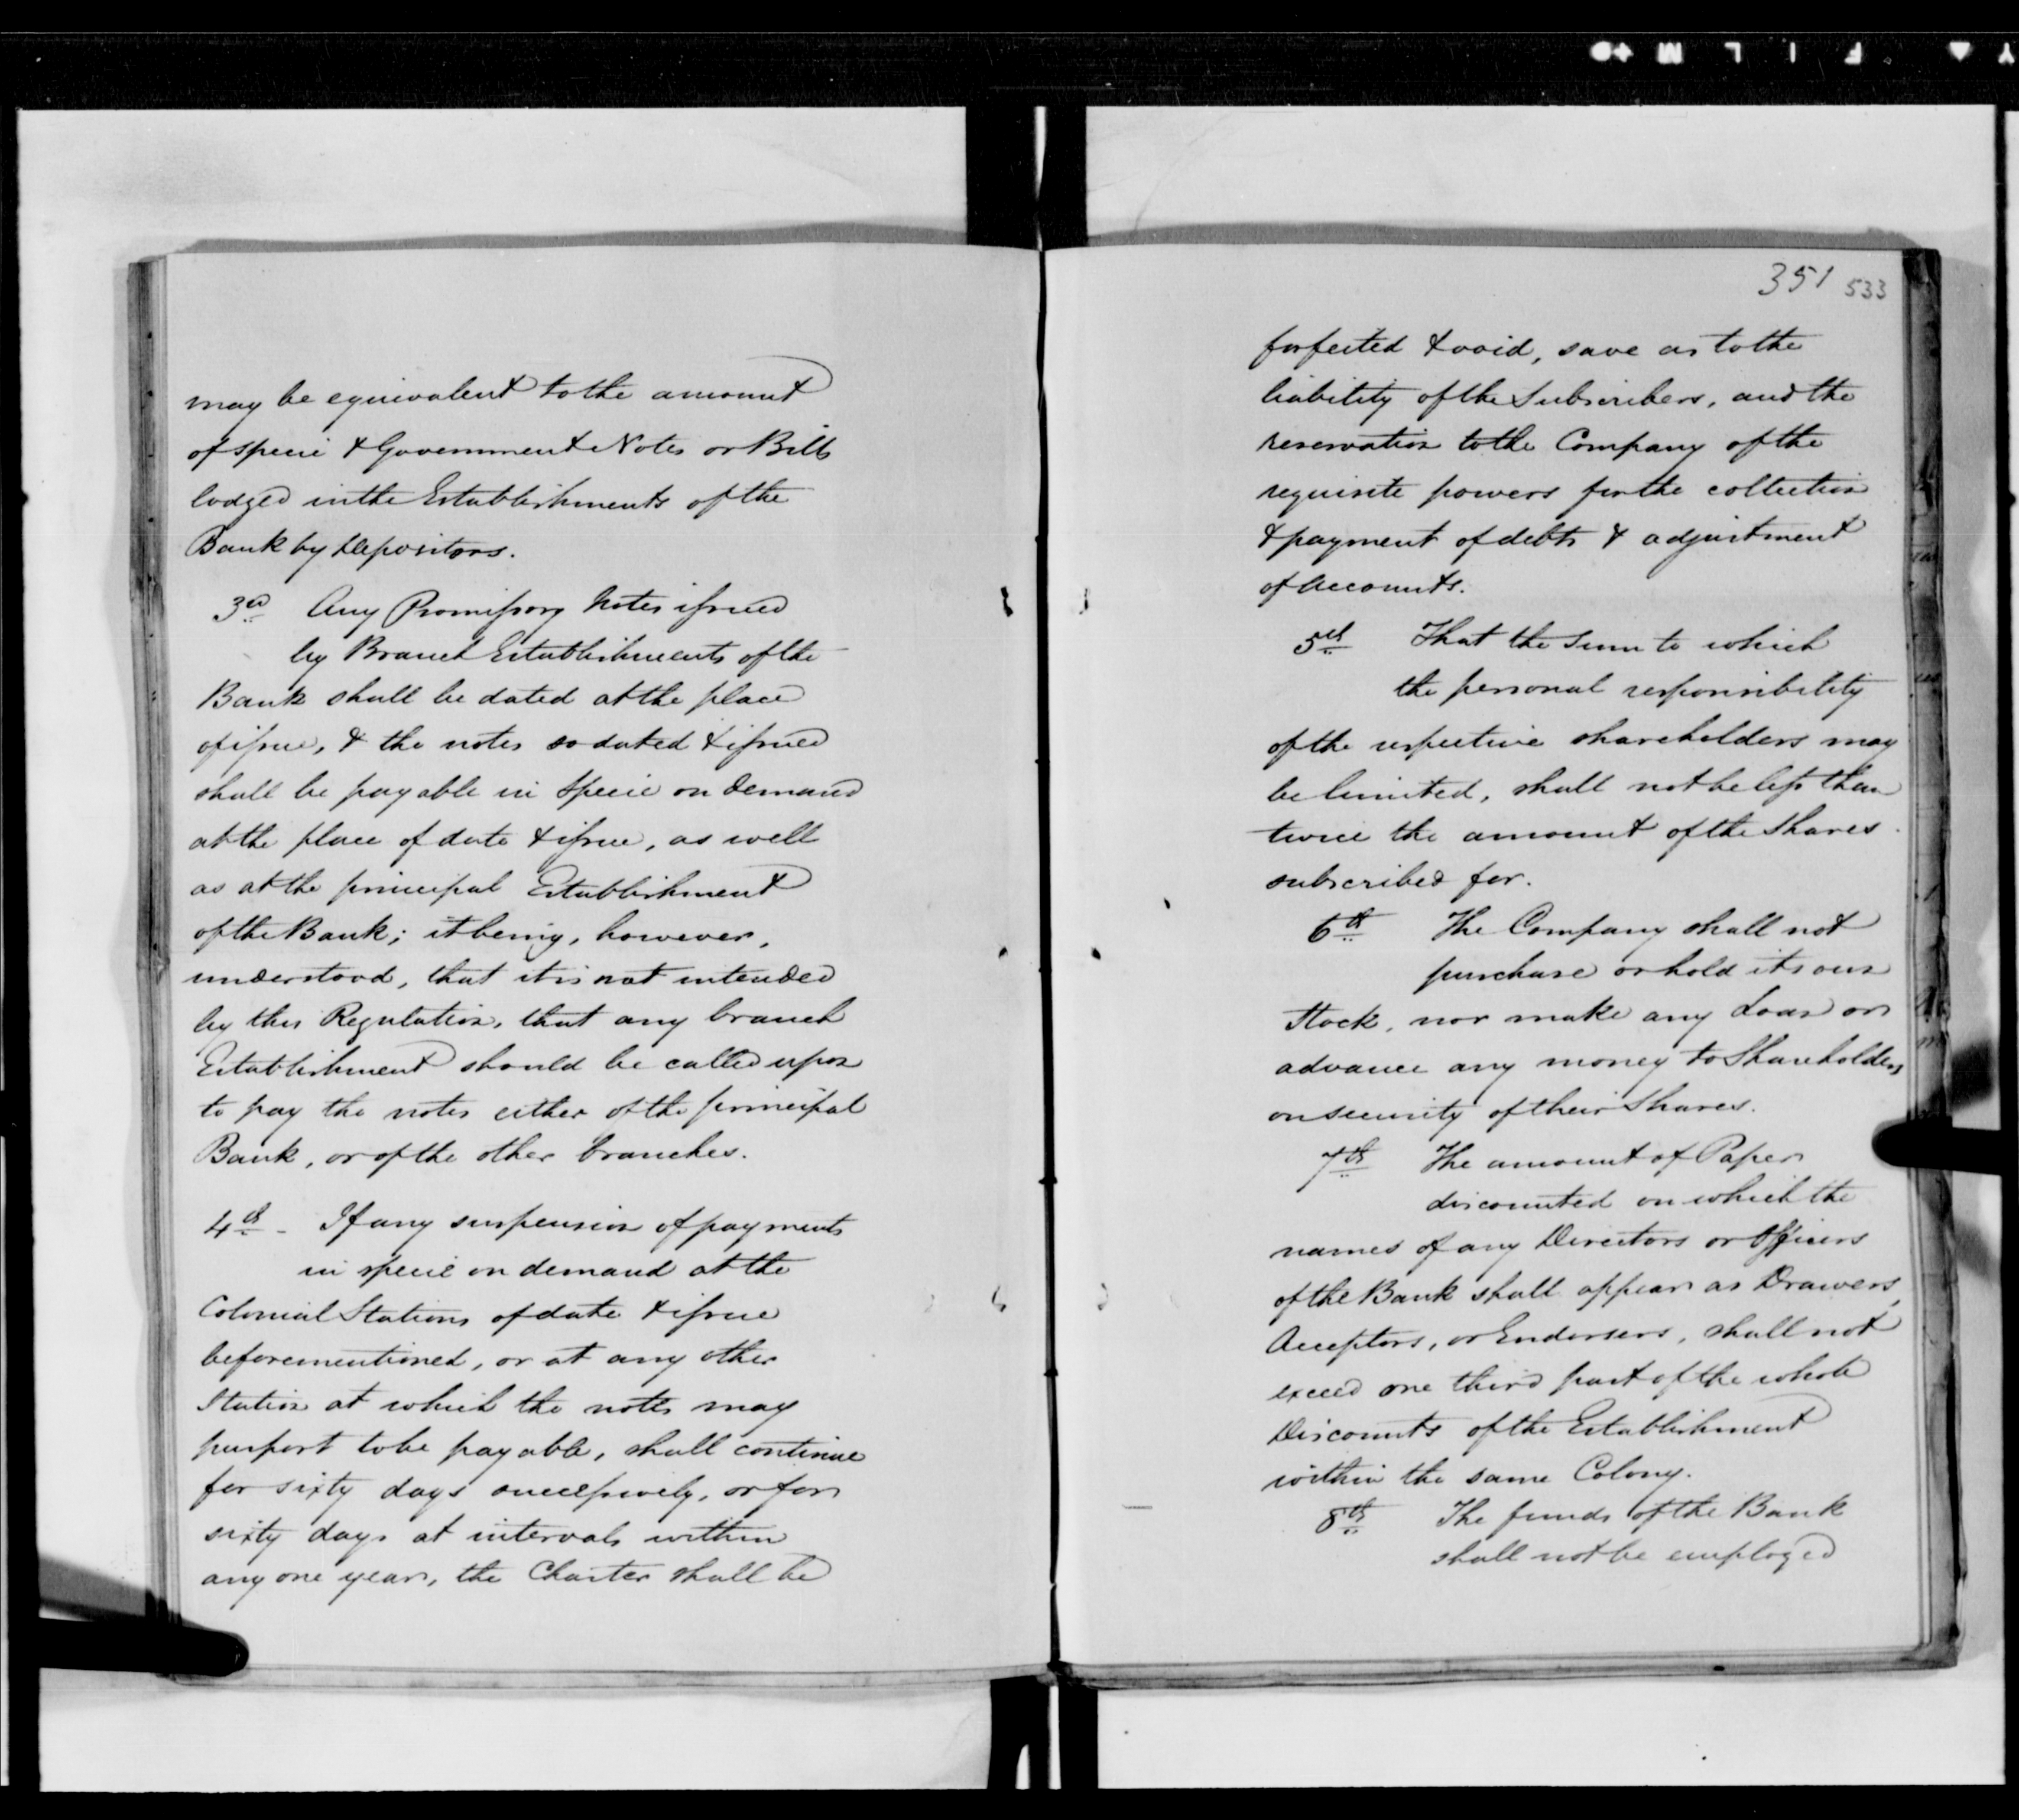 may be equivalent to the amount
of specie & Government Notes or Bills
lodged in the Establishments of the
Bank by Depositors.
3d Any Promissory Notes issued
by Branch Establishments of the
Bank shall be dated at the place
of issue, & the notes so dated & issued
shall be payable in Specie on demand
at the place of date & issue, as well
as at the principal Establishment
of the Bank; it being, however,
understood, that it is not intended
by this Regulation, that any branch
Establishment should be called upon
to pay the notes either of the principal
Bank, or of the other branches.
4th - If any suspension of payments
in specie on demand at the
Colonial Stations of date & issue
beforementioned, or at any other
Station at which the notes may
purport to be payable, shall continue
for sixty days successively, or for
sixty days at intervals within
any one year, the Charter shall be
351 533
forfeited & void, save as to the
liability of the Subscribers, and the
reservation to the Company of the
requisite powers for the collection
& payment of debts & adjustment
of Accounts.
5th That the Sum to which
the personal responsibility
of the respective shareholders may
be limited, shall not be less than
twice the amount of the Shares
subscribed for.
6th The Company shall not
purchase or hold its own
Stock, nor make any Loan or
advance any money to Shareholders
on security of their Shares.
7th The amount of Paper
discounted on which the
names of any Directors or Officers
of the Bank shall appear as Drawers,
Acceptors, or Endorsers, shall not
exceed one third part of the whole
Discounts of the Establishment
within the same Colony.
8th The funds of the Bank
shall not be employed